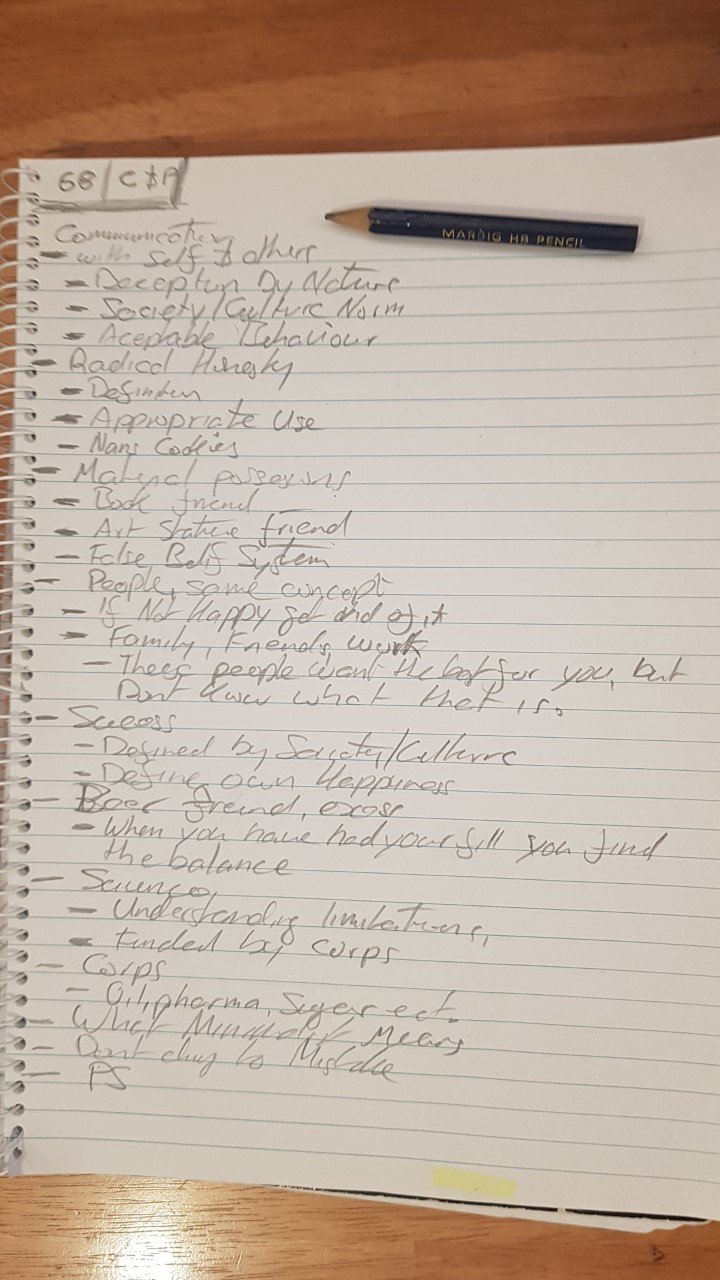 68 / C & A
MARSIG HB PENCIL
Communication
- with Self & others
- Deception By Nature
- Society/Culture Norm
- Aceptable Behaviour
- Radical Honesty
- Definition
- Appropriate Use
- Nans Cookies
- Material possessions
- Book friend
- Art Statue friend
- False Belif System
- People, same concept
- If Not Happy get rid of it
- Family, Friends, work
- These people want the best for you, but
Dont know what that is.
- Sucess
- Defined by Society/Culture
- Define own Happiness
- Beer freind, excess
- When you have had your fill you find
the balance
- Science,
- Understanding limitations,
- Funded by Corps
- Corps
- Oil, pharma, Sugar ect.
- What Minimalist Means
- Dont cling to Mistake
- PS